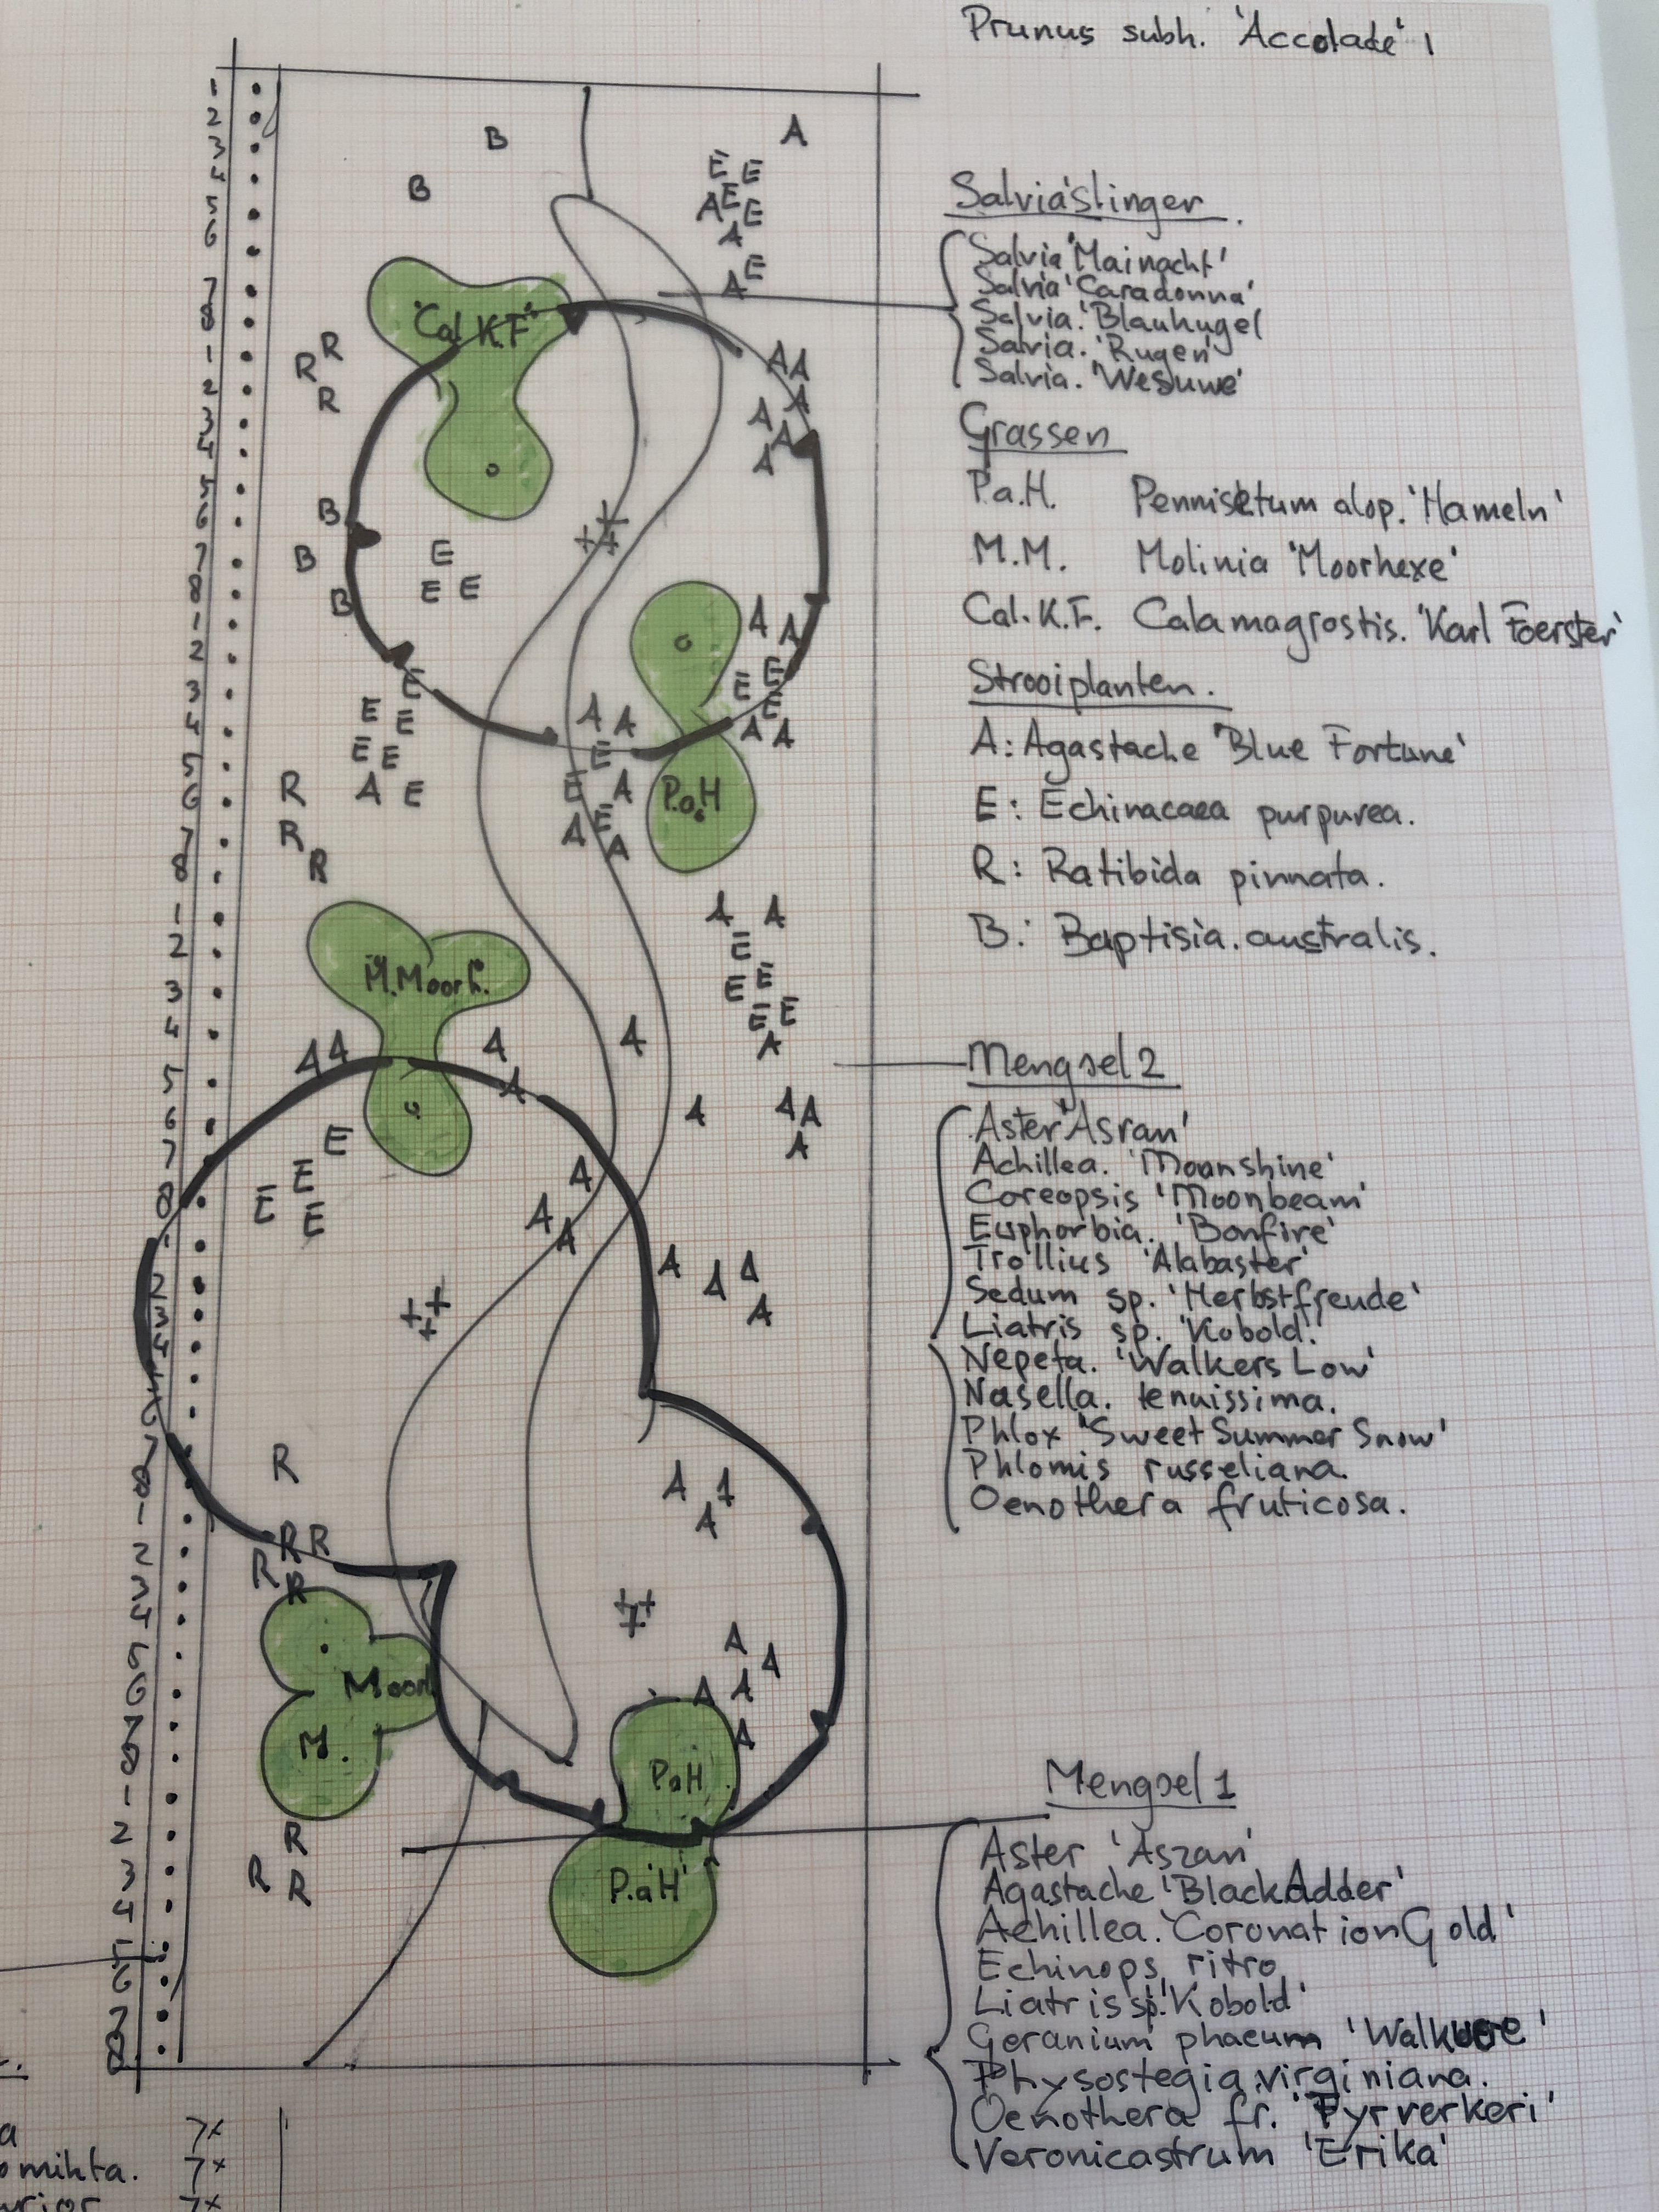 Prunus subh. 'Accolade' 1
Salvia'slinger.
Salvia 'Mainacht'
Salvia 'Caradonna'
Salvia. 'Blauhugel
Salvia. 'Rugen'
Salvia. 'Wesuwe'
Grassen
P.a.H. Pennisetum alop. 'Hameln'
M.M. Molinia 'Moorhexe'
Cal.K.F. Calamagrostis. 'Karl Foerster'
Strooiplanten.
A: Agastache 'Blue Fortune'
E: Echinacaea purpurea.
R: Ratibida pinnata.
B: Baptisia. australis.
Mengsel 2
Aster 'Asran'
Achillea. 'Moonshine'
Coreopsis 'Moonbeam'
Euphorbia. 'Bonfire'
Trollius 'Alabaster'
Sedum sp. 'Herbstfreude'
Liatris sp. 'Kobold.'
Nepeta. 'Walkers Low'
Nasella. tenuissima.
Phlox 'Sweet Summer Snow'
Phlomis russeliana.
Oenothera fruticosa.
Mengsel 1
Aster 'Aszan'
Agastache 'BlackAdder'
Achillea. 'Coronation Gold'
Echinops ritro
Liatris sp. 'Kobold'
Geranium phaeum
Physostegia virginiana.
Oenothera fr. 'Fyrverkeri'
Veronicastrum 'Erika'
1
2
3
4
5
6
7
8
1
2
3
4
5
6
7
8
1
2
3
4
5
6
7
8
1
2
3
4
5
6
7
8
1
2
3
4
6
7
8
1
2
3
4
5
6
7
8
1
2
3
4
5
6
7
8
B
A
E E
B
A E E
A
E
A
'Cal K.F'
R
R
R
A A
A
A
A
A
B
B
E
E E
B
A A
E
E E
E
E E
A A
A A
E E
E
A E
R
E A
P.a.H
R
A E
A
R
A A
E
M.Moorh.
E E
E E
A
A A
A
A
A
A
A A
A
E
E
E
E
A
A
A
A
A A
A
R
A A
A
R R
R
R
A
A
A
A
A
Moorh
M.
PaH
P.aH
R
R R
7x
omihta. 7x
7x